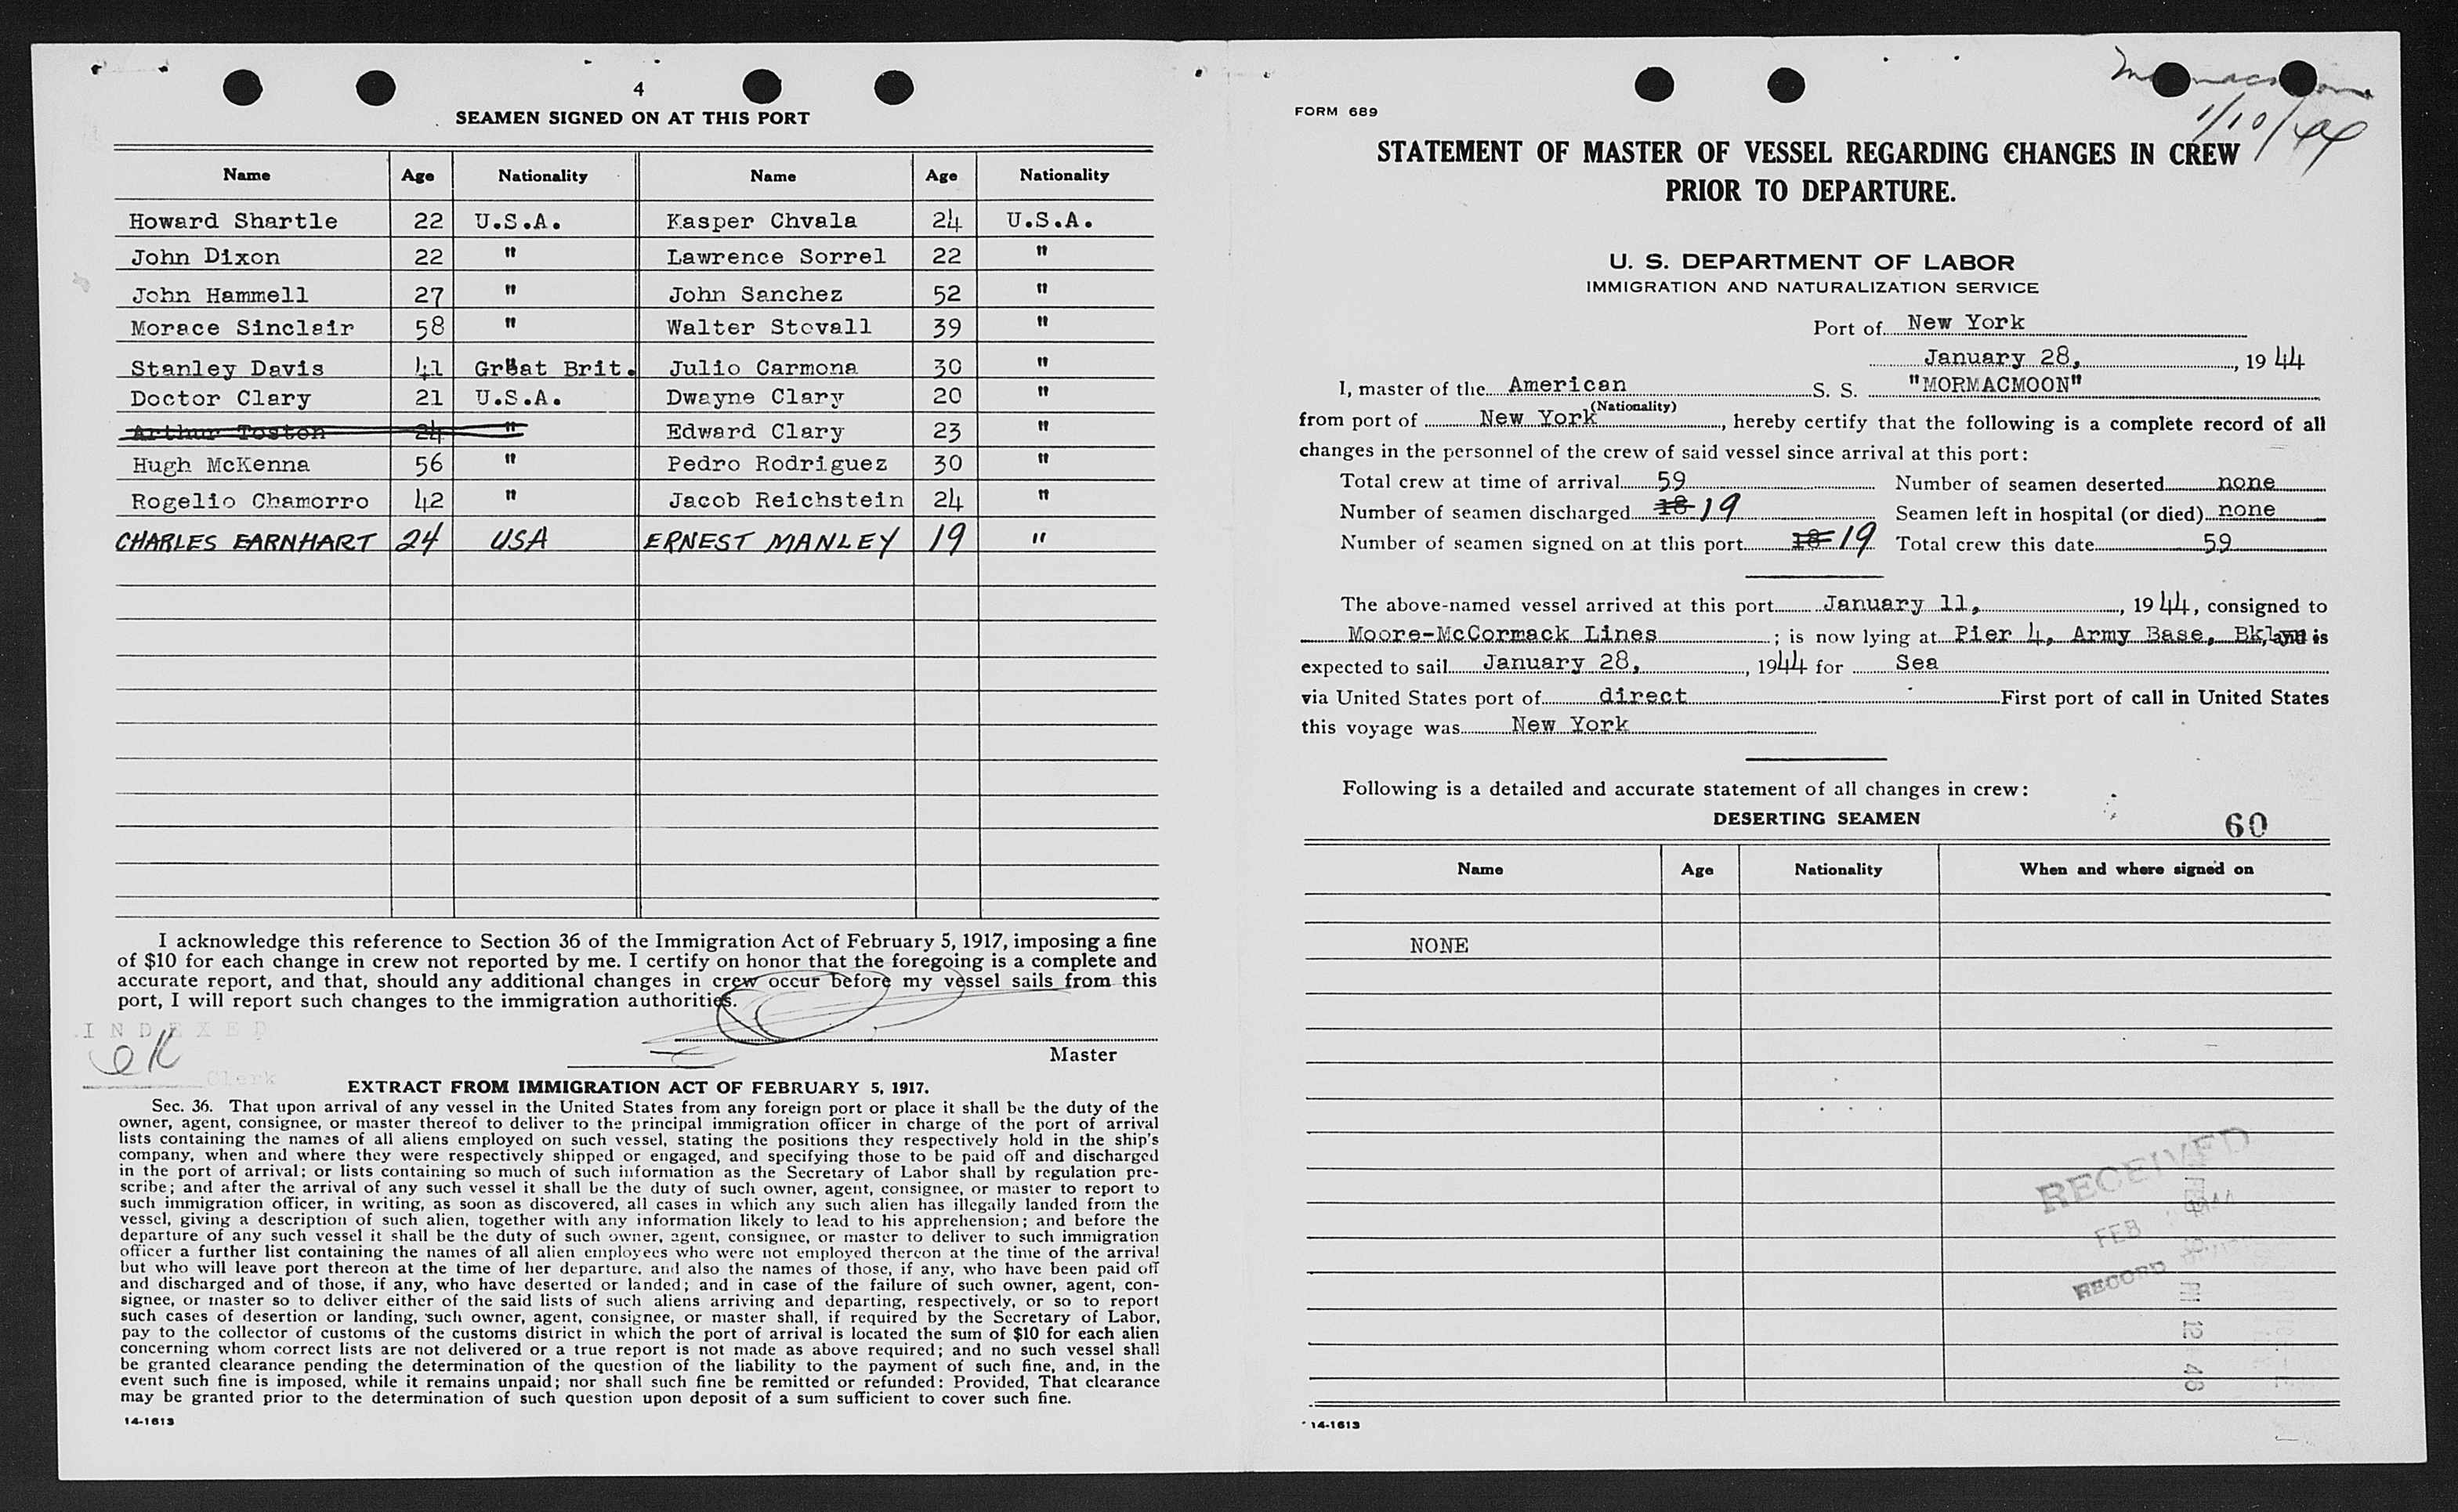 4
SEAMEN SIGNED ON AT THIS PORT
Name Age Nationality Name Age Nationality
Howard Shartle 22 U.S.A. Kasper Chvala 24 U.S.A.
John Dixon 22 " Lawrence Sorrel 22 "
John Hammell 27 " John Sanchez 52 "
Morace Sinclair 58 " Walter Stovall 39 "
Stanley Davis 41 Great Brit. Julio Carmona 30 "
Doctor Clary 21 U.S.A. Dwayne Clary 20 "
Arthur Toston 24 " Edward Clary 23 "
Hugh McKenna 56 " Pedro Rodriguez 30 "
Rogelio Chamorro 42 " Jacob Reichstein 24 "
CHARLES EARNHART 24 USA ERNEST MANLEY 19 "
I acknowledge this reference to Section 36 of the Immigration Act of February 5, 1917, imposing a fine
of $10 for each change in crew not reported by me. I certify on honor that the foregoing is a complete and
accurate report, and that, should any additional changes in crew occur before my vessel sails from this
port, I will report such changes to the immigration authorities.
INDEXED
Master
Clerk
EXTRACT FROM IMMIGRATION ACT OF FEBRUARY 5, 1917.
Sec. 36. That upon arrival of any vessel in the United States from any foreign port or place it shall be the duty of the
owner, agent, consignee, or master thereof to deliver to the principal immigration officer in charge of the port of arrival
lists containing the names of all aliens employed on such vessel, stating the positions they respectively hold in the ship's
company, when and where they were respectively shipped or engaged, and specifying those to be paid off and discharged
in the port of arrival; or lists containing so much of such information as the Secretary of Labor shall by regulation pre-
scribe; and after the arrival of any such vessel it shall be the duty of such owner, agent, consignee, or master to report to
such immigration officer, in writing, as soon as discovered, all cases in which any such alien has illegally landed from the
vessel, giving a description of such alien, together with any information likely to lead to his apprehension; and before the
departure of any such vessel it shall be the duty of such owner, agent, consignee, or master to deliver to such immigration
officer a further list containing the names of all alien employees who were not employed thereon at the time of the arrival
but who will leave port thereon at the time of her departure, and also the names of those, if any, who have been paid off
and discharged and of those, if any, who have deserted or landed; and in case of the failure of such owner, agent, con-
signee, or master so to deliver either of the said lists of such aliens arriving and departing, respectively, or so to report
such cases of desertion or landing, such owner, agent, consignee, or master shall, if required by the Secretary of Labor,
pay to the collector of customs of the customs district in which the port of arrival is located the sum of $10 for each alien
concerning whom correct lists are not delivered or a true report is not made as above required; and no such vessel shall
be granted clearance pending the determination of the question of the liability to the payment of such fine, and, in the
event such fine is imposed, while it remains unpaid; nor shall such fine be remitted or refunded: Provided, That clearance
may be granted prior to the determination of such question upon deposit of a sum sufficient to cover such fine.
14-1613
Mormacmoon
1/10/44
FORM 689
STATEMENT OF MASTER OF VESSEL REGARDING CHANGES IN CREW
PRIOR TO DEPARTURE.
U. S. DEPARTMENT OF LABOR
IMMIGRATION AND NATURALIZATION SERVICE
Port of New York
January 28, , 19 44
I, master of the American S. S. "MORMACMOON"
(Nationality)
from port of New York, hereby certify that the following is a complete record of all
changes in the personnel of the crew of said vessel since arrival at this port:
Total crew at time of arrival 59 Number of seamen deserted none
Number of seamen discharged 18 19 Seamen left in hospital (or died) none
Number of seamen signed on at this port 18 19 Total crew this date 59
The above-named vessel arrived at this port January 11, , 19 44, consigned to
Moore-McCormack Lines ; is now lying at Pier 4, Army Base, Bklyn and is
expected to sail January 28, , 1944 for Sea
via United States port of direct First port of call in United States
this voyage was New York
Following is a detailed and accurate statement of all changes in crew:
DESERTING SEAMEN
60
Name Age Nationality When and where signed on
NONE
RECEIVED
FEB
RECORD
PM 12 46
14-1613